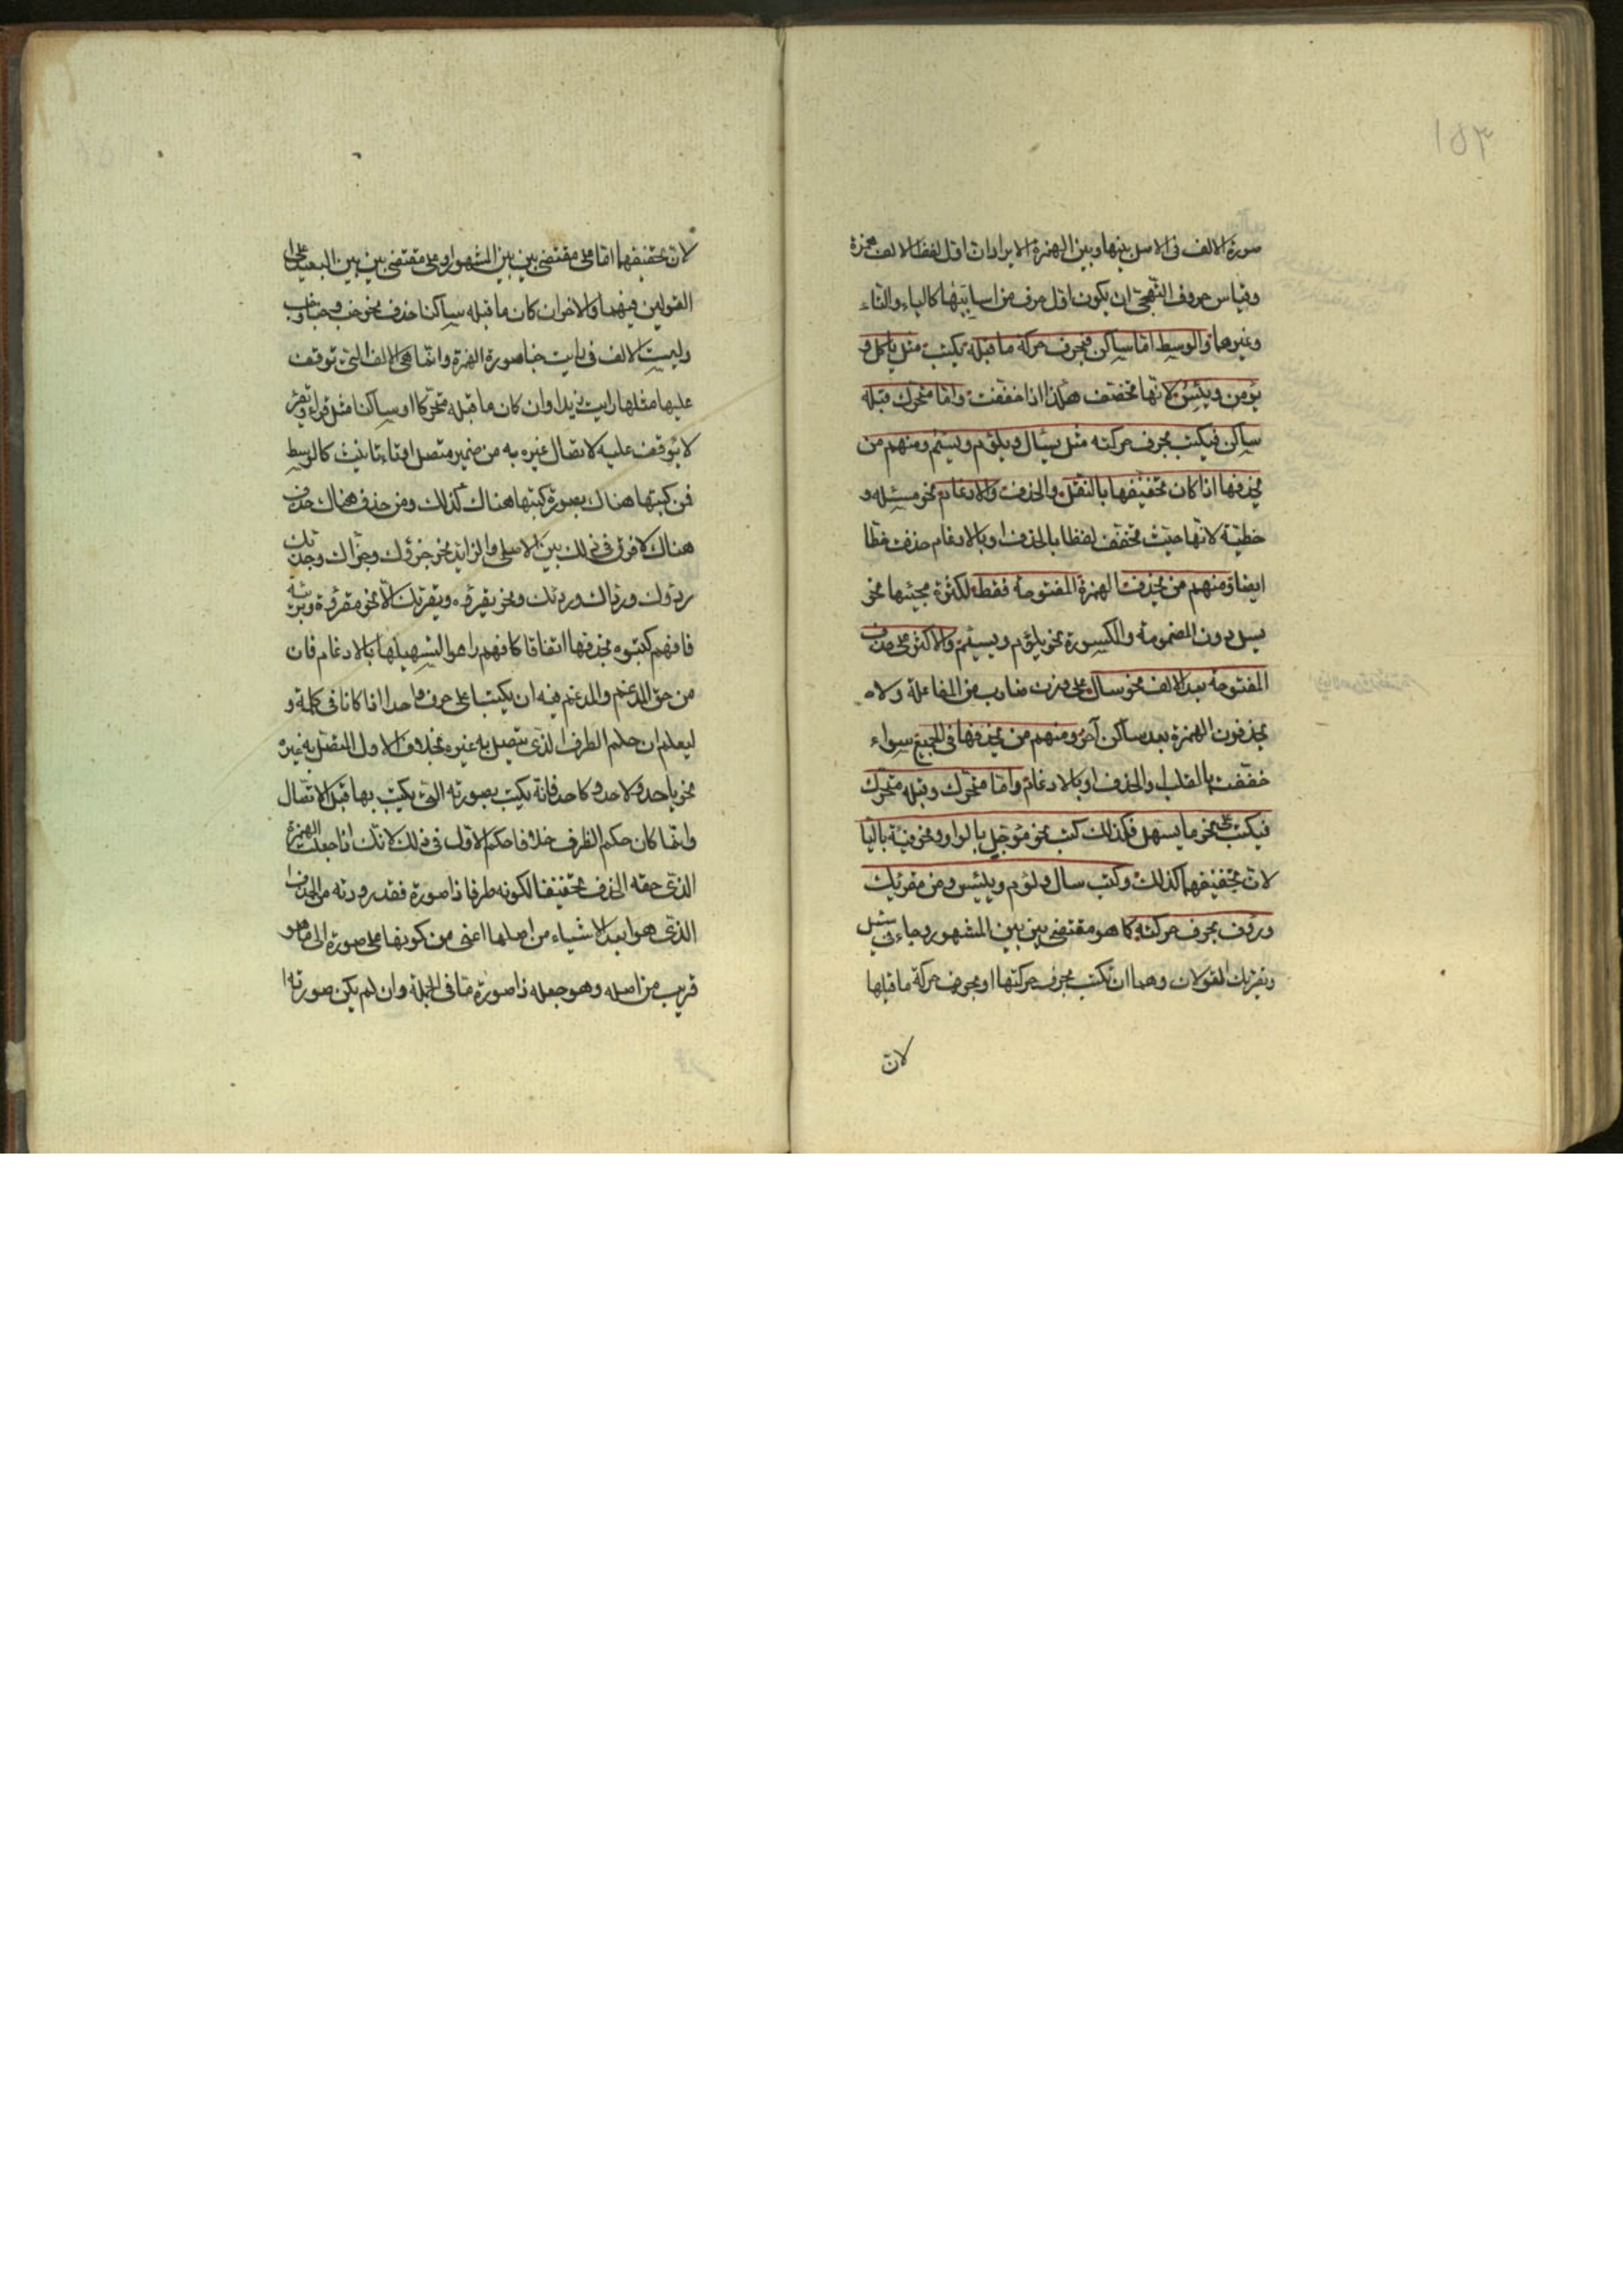 ١٥٣
صورة الالف فى الاصل بينها وبين الهمزة الا يرادات اول لفظ الالف همزة
وقياس حروف التهجى ان يكون اول حرف من اساميها كالباء والتاء
وغيرهما والوسط اما ساكن فبحرف حركة ما قبله يكتب مثل ياكل و
يؤمن وبئس لانها تخفف هكذا اذا خففت واما متحرك قبله
ساكن فيكتب بحرف حركته مثل يسأل ويلؤم ويسئم ومنهم من
يحذفها اذا كان تخفيفها بالنقل والحذف والادغام نحو مسئلة و
خطيّة لانها حيث تخفف لفظا بالحذف او بالادغام حذف خطا
ايضا ومنهم من يحذف الهمزة المفتوحة فقط لكثرة مجيئها نحو
يسل دون المضمومة والمكسورة نحو يلؤم ويسئم والاكثر على حذف
المفتوحة بعد الالف نحو سال على وزن ضارب من المفاعلة ولا
يحذفون الهمزة بعد ساكن آخر ومنهم من يحذفها فى الجميع سواء
خففت بالقلب او الحذف او بالادغام واما متحرك وقبله متحرك
فيكتب على نحو ما يسهل فلذلك كتب نحو مؤجل بالواو ونحو فئة باليا
لان تخفيفهما كذلك وكتب سال ولؤم ويئس ومن مقرئك
ورؤف بحرف حركته كما هو مقتضى بين بين المشهور وجاء فى سئل
ويقرئك القولان وهما ان تكتب بحرف حركتها او بحرف حركة ما قبلها
لان
لان تخفيفهما اما على مقتضى بين بين المشهور او على مقتضى بين بين البعيد على
القولين فيهما والاخر ان كان ما قبله ساكنا حذف نحو خب وخبا وخب
وليست الالف فى رايت خبا صورة الهمزة وانما هى الالف التى توقف
عليها مثلها رايت زيدا وان كان ما قبله متحركا او ساكنا مثل قراء ويقرئ
لا يوقف عليه لاتصال غيره به من ضمير متصل او تاء تانيث كالوسط
فمن كتبها هناك بصورة كتبها هناك كذلك ومن حذف هناك حذف
هناك لا فرق فى ذلك بين الاصلى والزايد نحو جزؤك وجزاك وجزئك
ردؤك ورداك وردئك ونحو يقرؤه ويقرئك الا نحو مقروة وبريّة
فانهم كتبوه بحذفها اتفاقا كانهم راعوا لتسهيلها بالادغام فان
من حق المدغم والمدغم فيه ان يكتبا على حرف واحد اذا كانا فى كلمة و
ليعلم ان حكم الطرف الذى يتصل به غيره بخلاف الاول المتصل به غيره
نحو باحد ولاحد وكاحد فانه يكتب بصورته التى يكتب بها قبل الاتصال
وانما كان حكم الطرف خلاف حكم الاول فى ذلك لانك اذا جعلت الهمزة
الذى حقه الحذف تخفيفا لكونه طرفا ذا صورة فقد رددته من الحذف
الذى هو ابعد الاشياء من اصلها اعنى من كونها على صورة الى ما هو
قريب من اصله وهو جعله ذا صورة ما فى الجملة وان لم يكن صورته